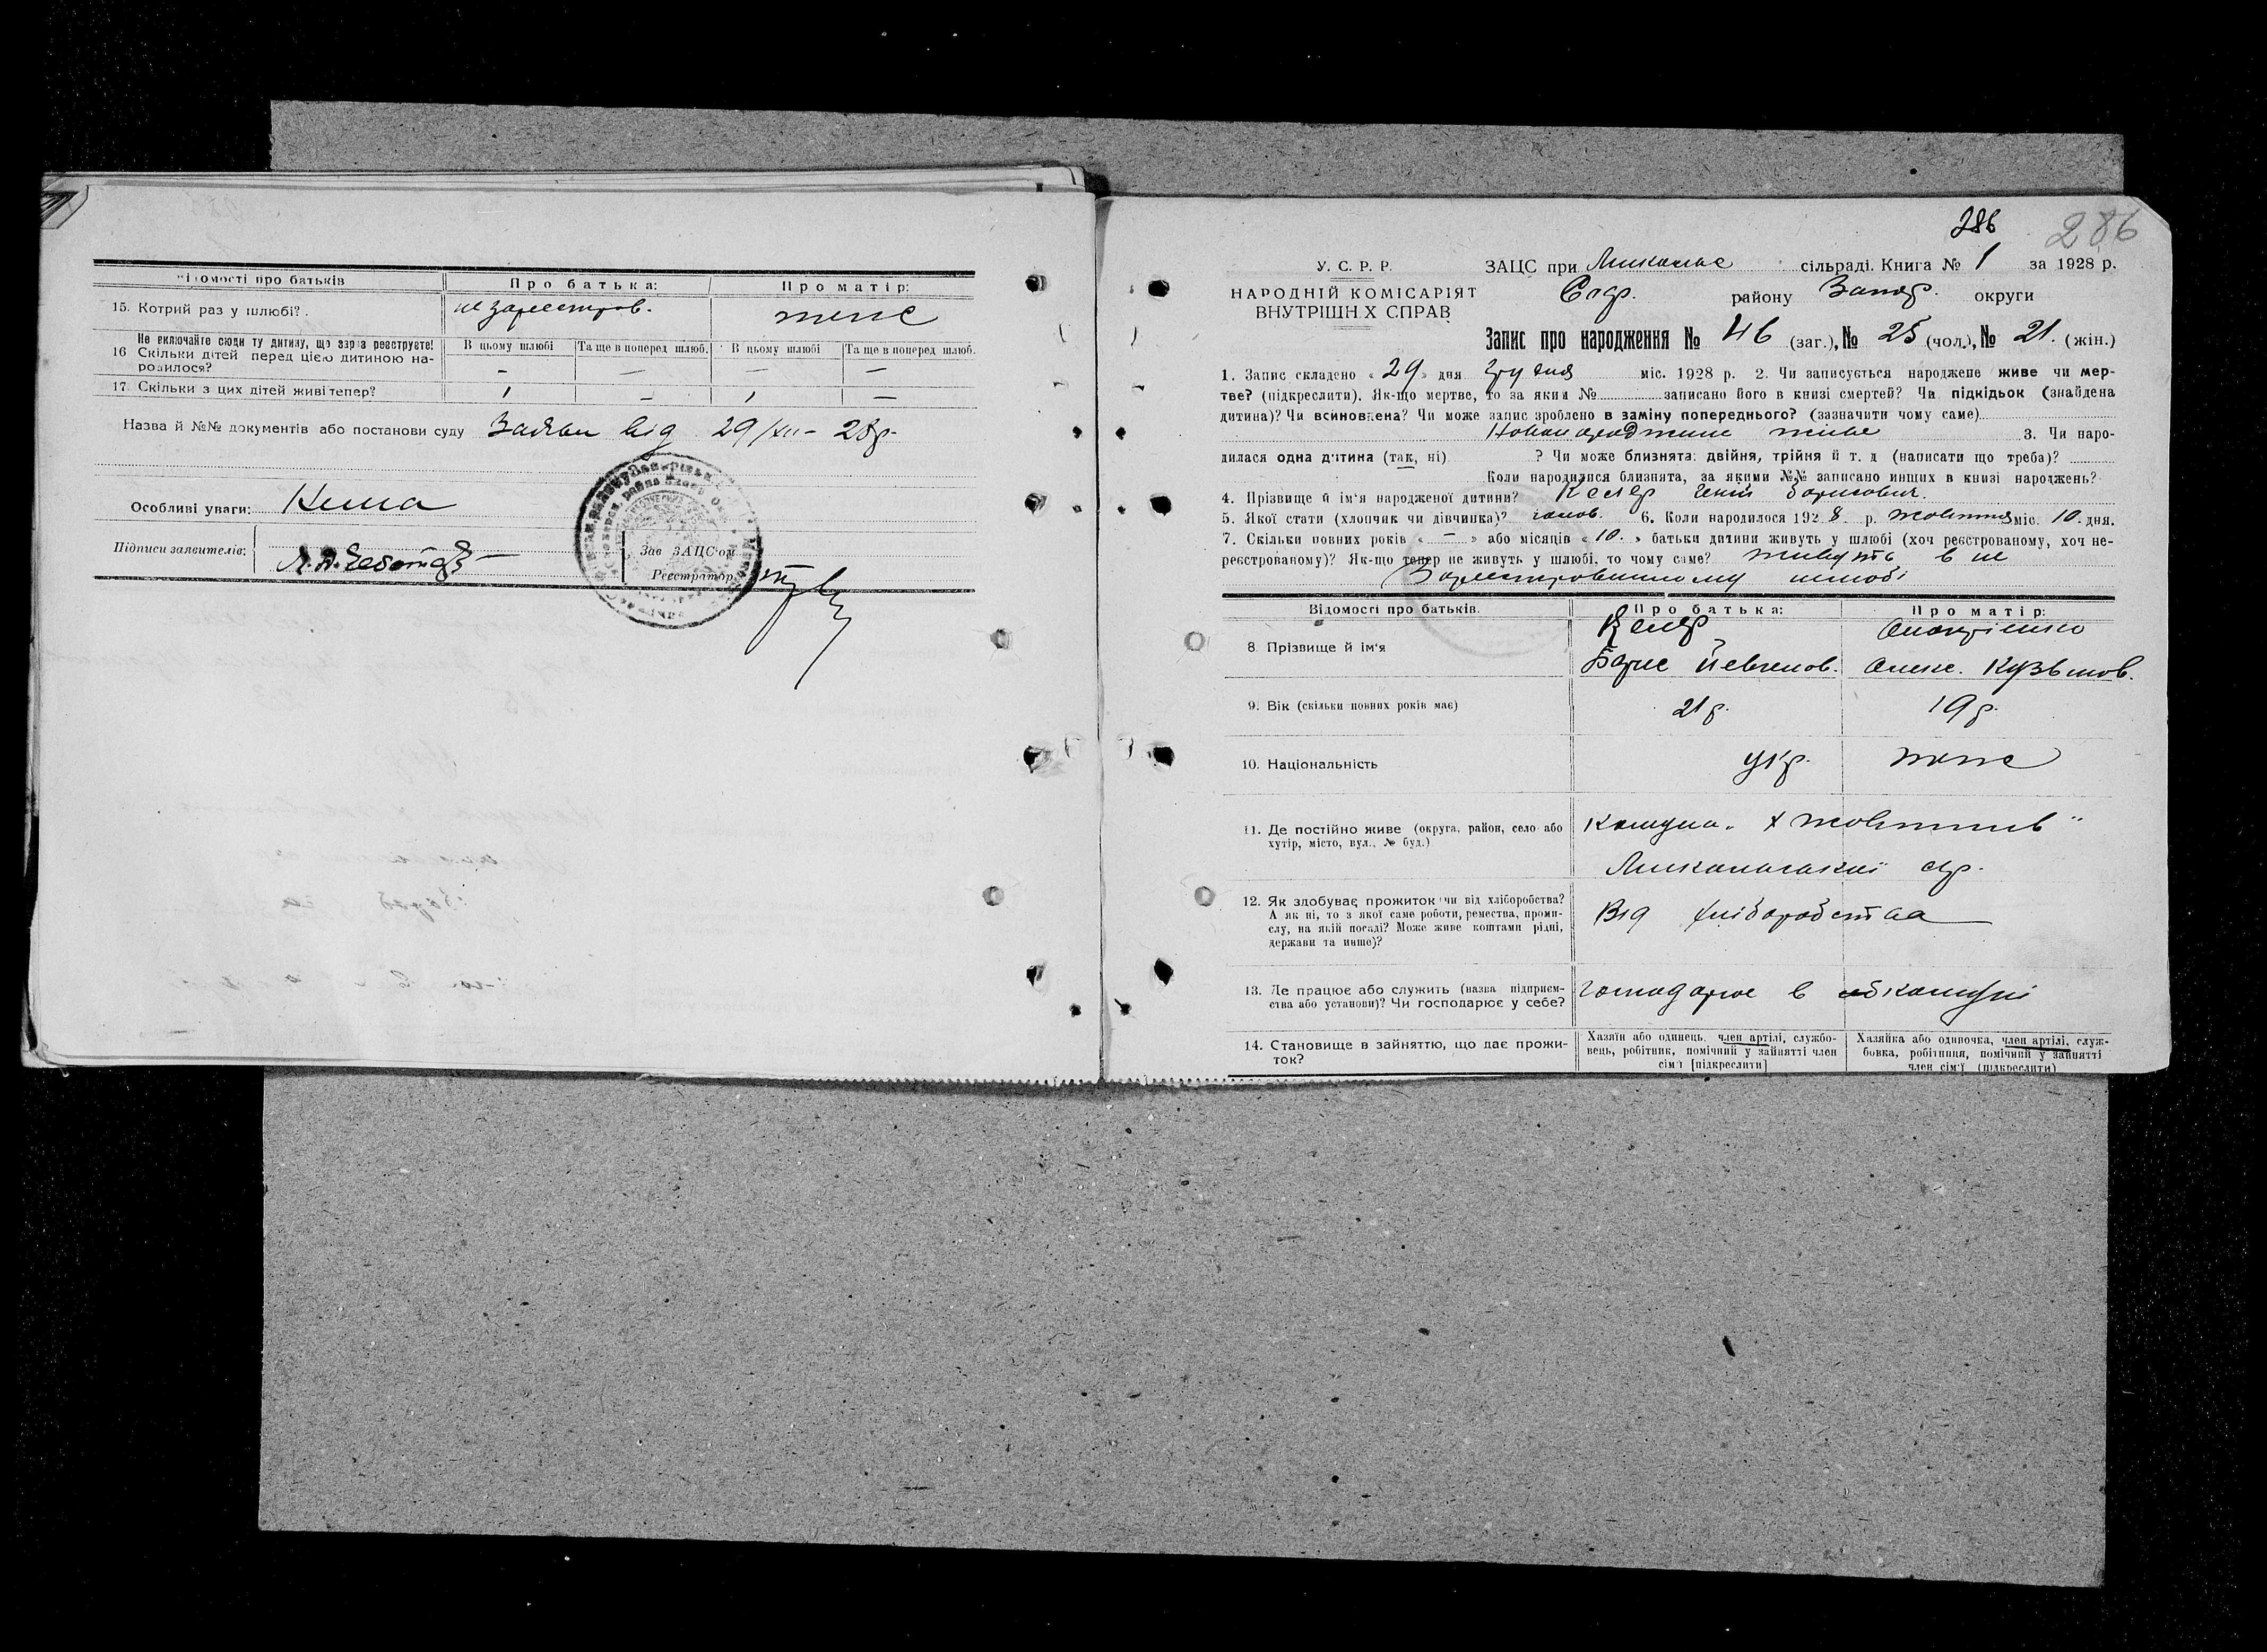 Відомості про батьків
Про батька:
Про матір:
15. Котрий раз у шлюбі?
не зареєстров.
теж
Не включайте сюди ту дитину, що зараз реєструєте!
16 Скільки дітей перед цією дитиною народилося?
В цьому шлюбі
Та ще в поперед. шлюб.
В цьому шлюбі
Та ще в поперед. шлюб.
— — — —
17. Скільки з цих дітей живі тепер?
Назва й №№ документів або постанови суду Заява від 29/XII – 28 р.
Особливі уваги: Нема
Підписи заявителів:
Зав ЗАЦС'ом
Реєстратор
286
286
У. С. Р. Р.
НАРОДНІЙ КОМІСАРІЯТ
ВНУТРІШНІХ СПРАВ
ЗАЦС при сільраді. Книга № 1 за 1928 р.
району Запор. округи
Запис про народження № 46 (заг.), № 25 (чол.), № 21. (жін.)
1. Запис складено « 29 » дня грудня міс. 1928 р. 2. Чи записується народжене живе чи мер-
тве? (підкреслити). Як-що мертве, то за яким № записано його в книзі смертей? Чи підкідьок (знайдена
дитина)? Чи всиновлена? Чи може запис зроблено в заміну попереднього? (зазначити чому саме)
живе 3. Чи наро-
дилася одна дитина (так, ні) ? Чи може близнята: двійня, трійня й т. д (написати що треба)?
Коли народилися близнята, за якими №№ записано инших в книзі народжень?
4. Прізвище й ім'я народженої дитини? Келер Борисович.
5. Якої стати (хлопчик чи дівчинка)? чолов. 6. Коли народилося 1928 р. жовтня міс. 10. дня.
7. Скільки повних років « — » або місяців « 10. » батьки дитини живуть у шлюбі (хоч реєстрованому, хоч не-
реєстрованому)? Як-що тепер не живуть у шлюбі, то чому саме? живуть в не
зареєстрованному шлюбі
Відомості про батьків.
Про батька:
Про матір:
8. Прізвище й ім'я
Келер
Борис Йевгенов.
Онопрієнко
Олекс. Кузьмов.
9. Вік (скільки повних років має)
21 р.
19 р.
10. Національність
укр.
теж
11. Де постійно живе (округа, район, село або
хутір, місто, вул., № буд.)
Комуна „Х жовтнів"
ср.
12. Як здобуває прожиток чи від хліборобства?
А як ні, то з якої саме роботи, ремества, проми-
слу, на якій посаді? Може живе коштами рідні,
держави та инше)?
Від хліборобства
13. Де працює або служить (назва підприєм-
ства або установи)? Чи господарює у себе?
господарює в комуні
14. Становище в зайняттю, що дає прожи-
ток?
Хазяїн або одинець, член артілі, службо-
вець, робітник, помічний у зайнятті член
сім'ї [підкреслити]
Хазяйка або одиночка, член артілі, служ-
бовка, робітниця, помічний у зайнятті
член сім'ї (підкреслити)